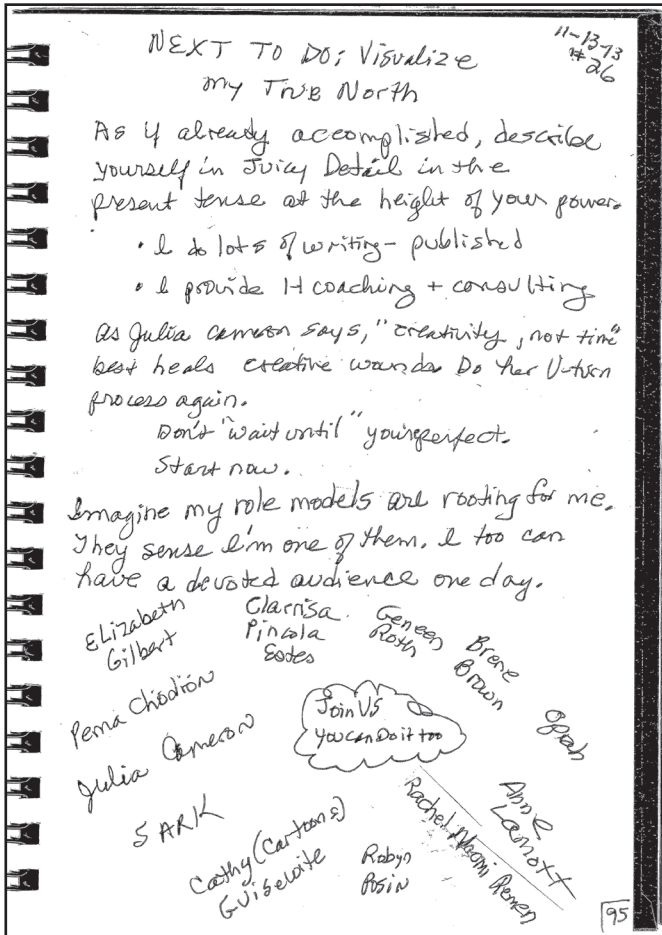 11-13-13
# 26
NEXT TO DO: Visualize
my True North
As if already accomplished, describe
yourself in Juicy Detail in the
present tense at the height of your power.
• I do lots of writing - published
• I provide 1-1 coaching + consulting
As Julia Cameron says, "creativity, not time"
best heals creative wounds. Do her U-turn
process again.
Don't "wait until" you're perfect.
Start now.
Imagine my role models are rooting for me.
They sense I'm one of them. I too can
have a devoted audience one day.
Elizabeth
Gilbert
Clarrisa
Pincola
Estes
Geneen
Roth
Brene
Brown
Oprah
Pema Chodron
Join US
You can Do it too
Julia Cameron
Anne
Lamott
SARK
Cathy (Cartoons)
Guisewite
Robyn
Posin
Rachel Naomi Remen
95